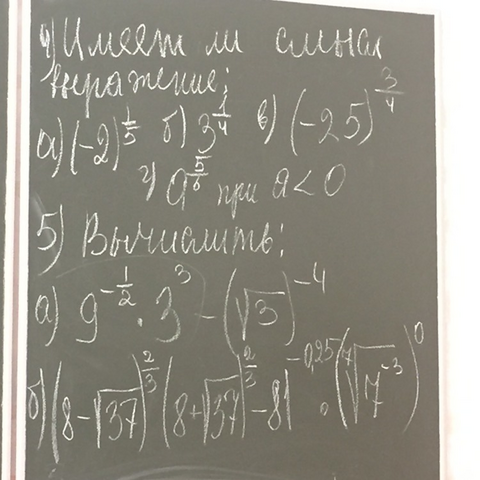 4) Имеет ли смысл
выражение:
а) (-2)^{1/5} б) 3^{1/4} в) (-25)^{3/4}
г) a^{5/6} при a<0
5) Вычислить:
а) 9^{-1/2} · 3^3 - (√3)^{-4}
б) (8-√37)^{2/3} (8+√37)^{2/3} - 81^{-0,25} · (⁷√7^{-3})^0